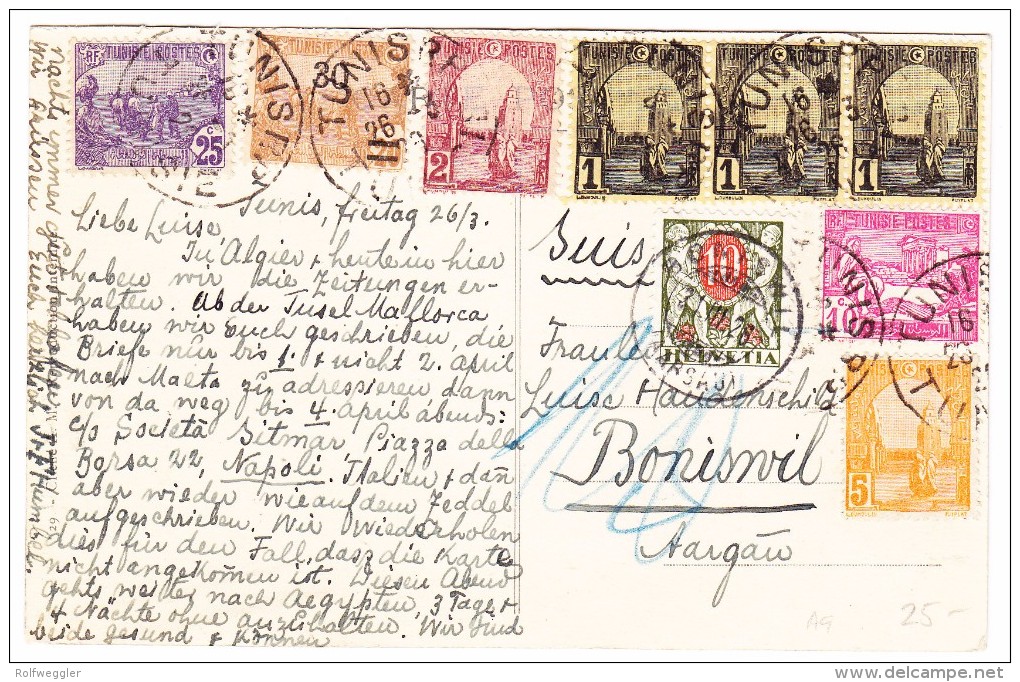 TUNISIE POSTES
RF
25
TUNISIE POSTES
30
TUNISIE POSTES
2
TUNISIE POSTES
1
TUNISIE POSTES
1
TUNISIE POSTES
1
TUNIS
TUNIS
16
26
TUNIS
TUNIS
16
Tunis, freitag 26/3.
Liebe Luise
In Algier & heute in hier
haben wir die Zeitungen er-
halten. Ab der Insel Mallorca
haben wir Euch geschrieben, die
Briefe nur bis 1. & nicht 2. April
nach Malta zu adressieren dann
von da weg bis 4. April abends:
c/o Società Sitmar, Piazza della
Borsa 22, Napoli, Italien & dan̄
aber wieder wie auf dem Zeddel
aufgeschrieben. Wir wiederholen
dies für den Fall, dass die Karte
nicht angekom̄en ist. Diesen Abend
gehts weiter nach Aegypten, 3 Tage &
4 Nächte ohne anzuhalten. Wir sind
beide gesund & kön̄en
nachts immer gut
wir grüssen Euch herzlich
Suis
10
HELVETIA
RF TUNISIE POSTES
10
TUNIS
TUNIS
16
5
Fraulein
Luise Hauenschild
Boniswil
Aargau
25-
Rolfweggler
www.delcampe.net